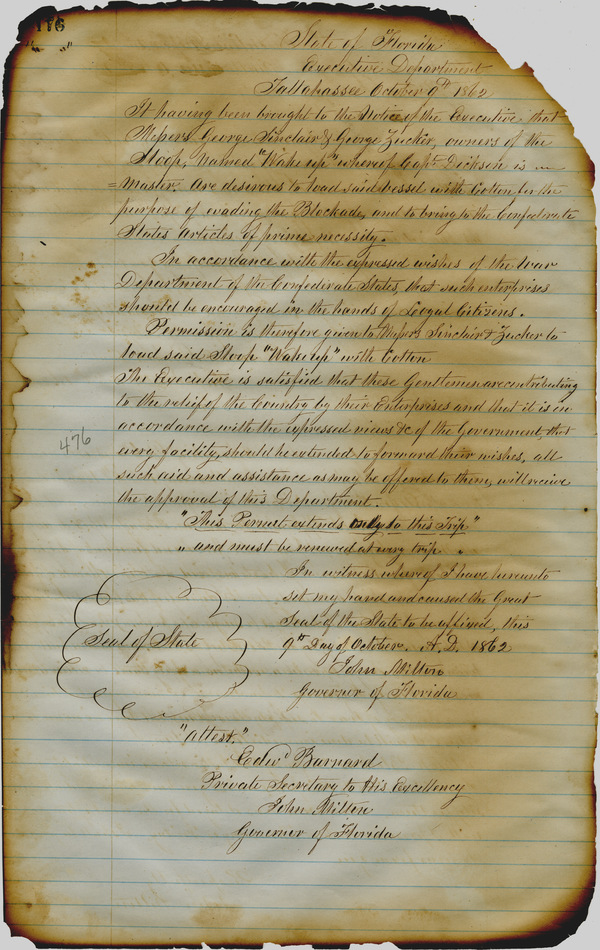 176
State of Florida
Executive Department
Tallahassee October 9th 1862
It having been brought to the Notice of the Executive that
Messrs George Sinclair & George Zucker, owners of the
Sloop, Named "Wake up" whereof Capt Dickson is
Master. Are desirous to load said vessel with Cotton for the
purpose of evading the Blockade, and to bring to the Confederate
States Articles of prime necessity.
In accordance with the expressed wishes of the War
Department of the Confederate States, that such enterprises
should be encouraged in the hands of Loyal Citizens.
Permission is therefore given to Messrs Sinclair & Zucker to
load said Sloop "Wake up" with Cotton
The Executive is satisfied that these Gentlemen are contributing
to the relief of the Country by their Enterprises and that it is in
accordance with the expressed views &c of the Government, that
every facility should be extended to forward their wishes, all
such aid and assistance as may be offered to them, will receive
the approval of this Department.
"This Permit extends only to this Trip"
" and must be renewed at every trip "
In witness whereof I have hereunto
set my hand and caused the Great
Seal of the State to be affixed, this
9th Day of October. A.D. 1862
John Milton
Governor of Florida
Seal of State
476
"Attest."
Edwd Barnard
Private Secretary to His Excellency
John Milton
Governor of Florida